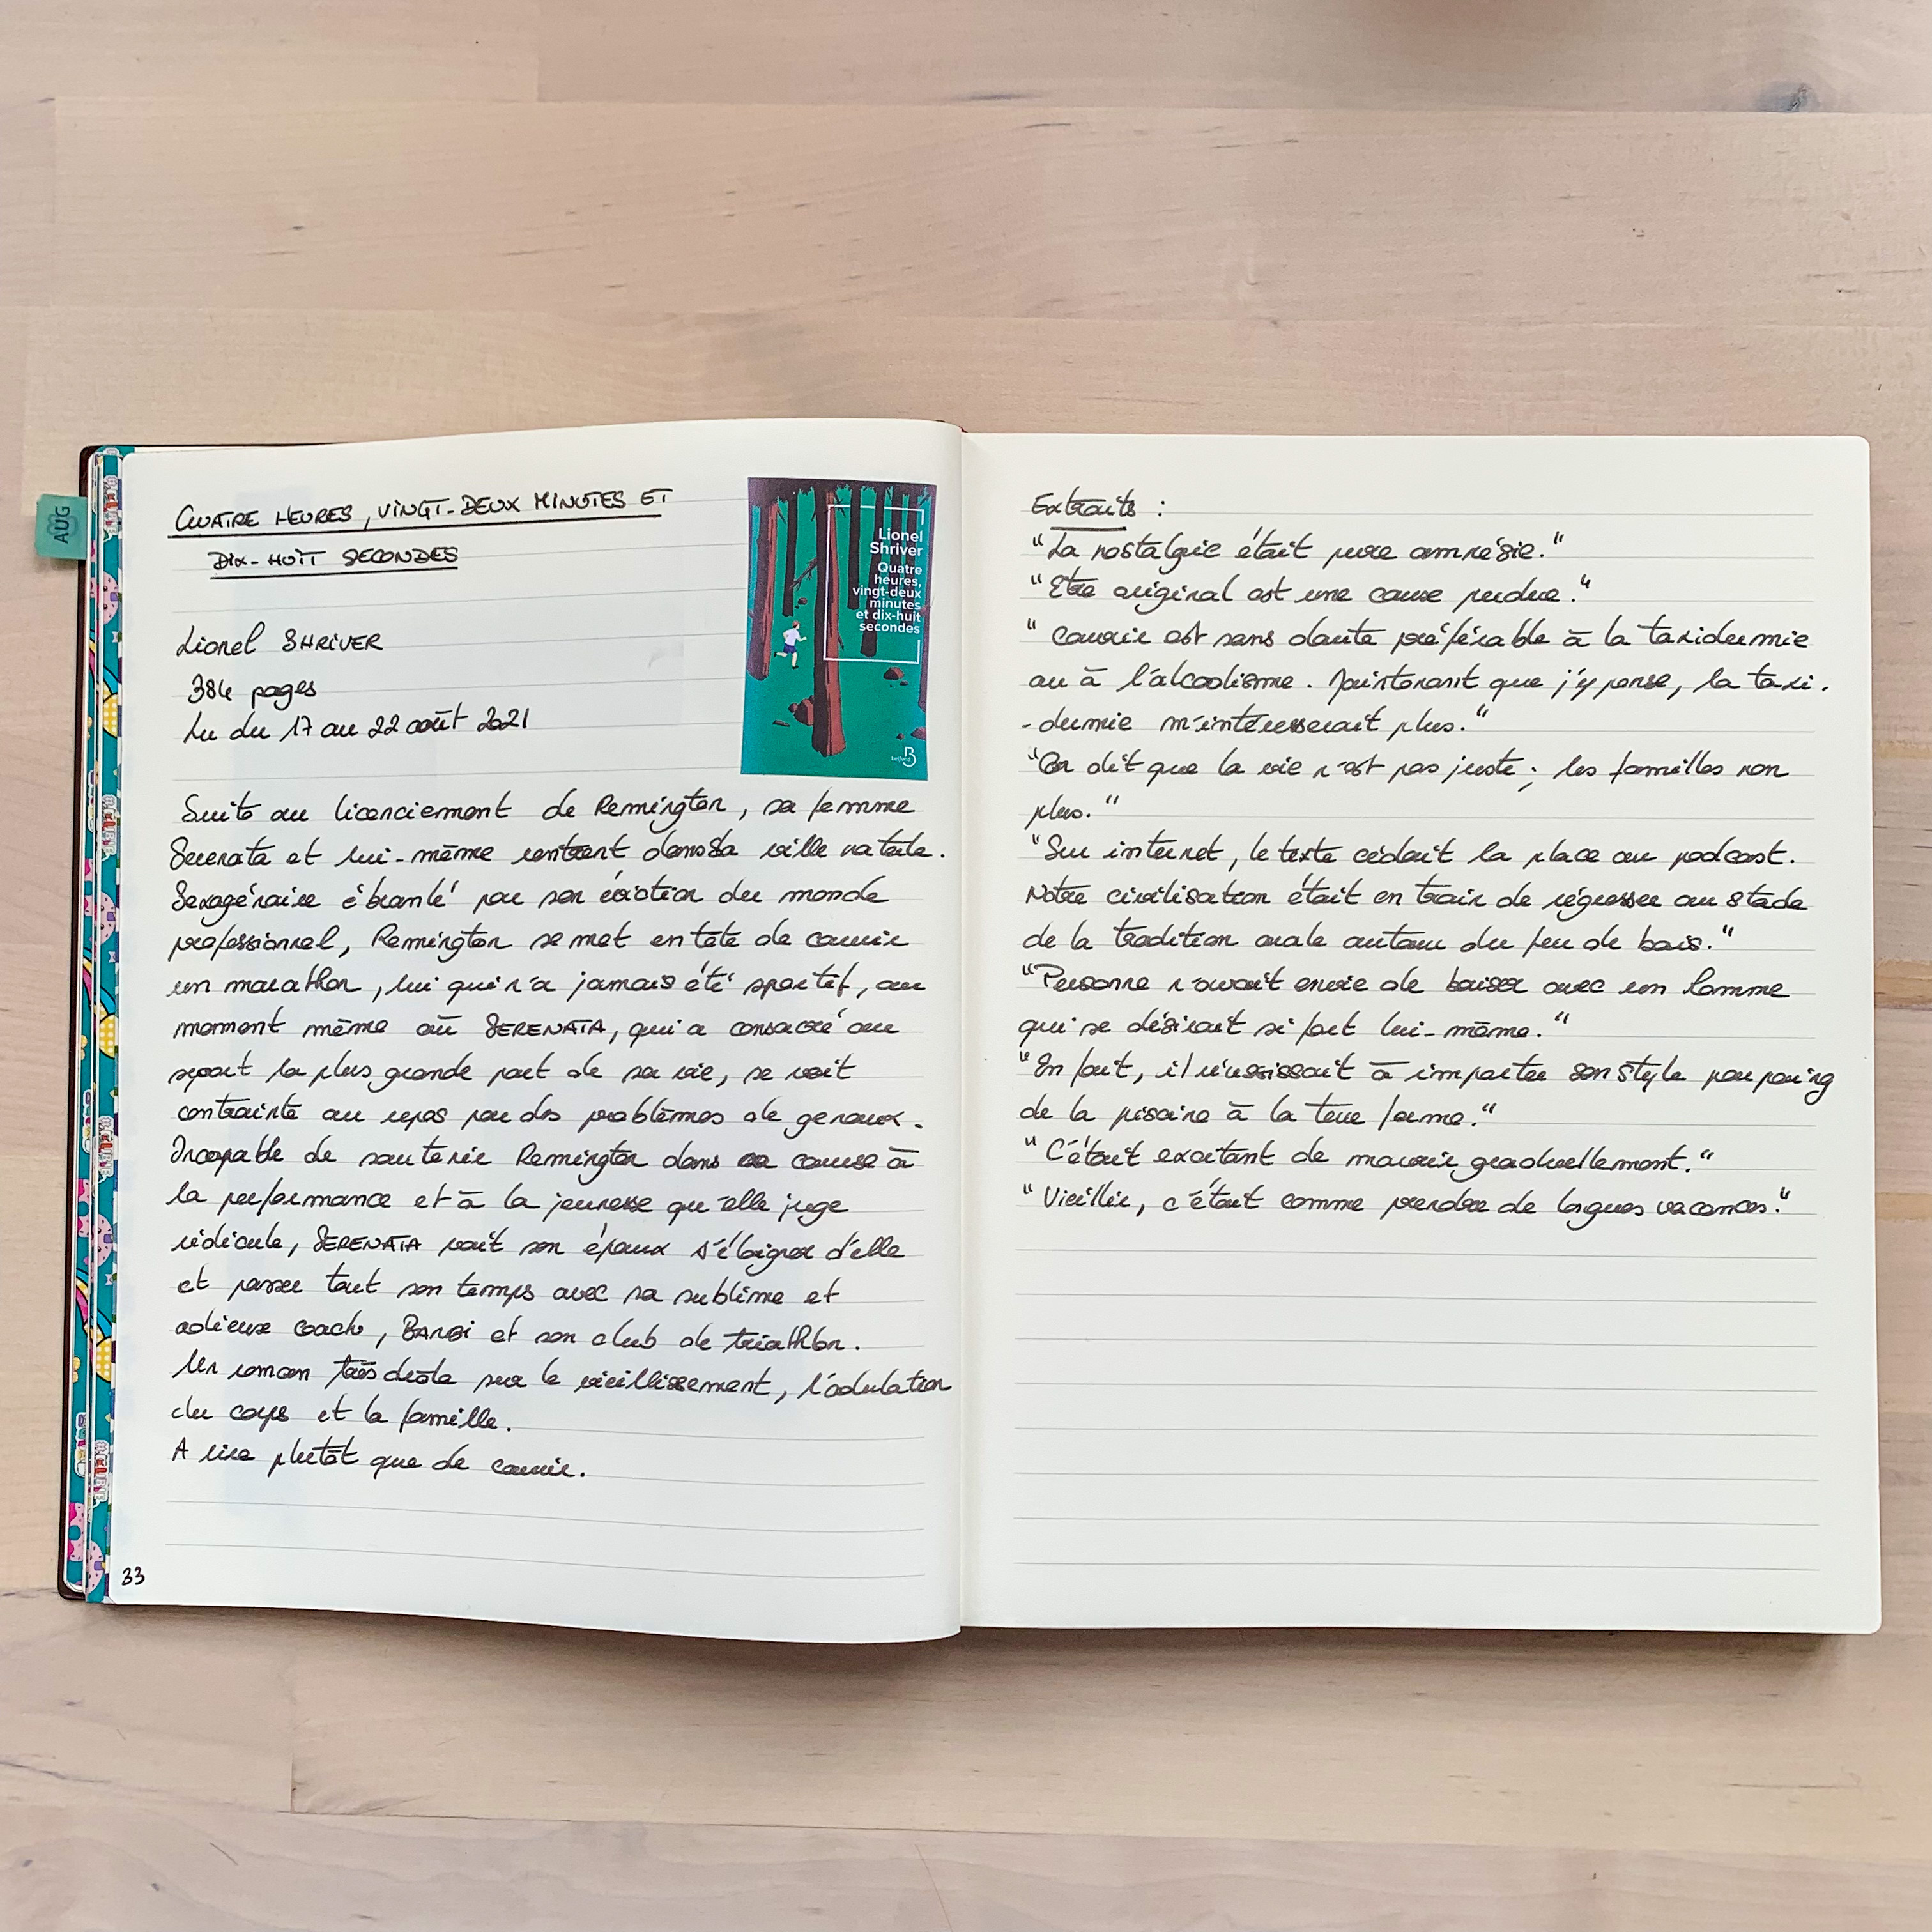 AUG
QUATRE HEURES, VINGT-DEUX MINUTES ET
DIX-HUIT SECONDES
Lionel SHRIVER
384 pages
Lu du 17 au 22 août 2021
Lionel
Shriver
Quatre
heures,
vingt-deux
minutes
et dix-huit
secondes
belfond
Suite au licenciement de Remington, sa femme
Serenata et lui-même rentrent dans sa ville natale.
Sexagénaire ébranlé par son éviction du monde
professionnel, Remington se met en tête de courir
un marathon, lui qui n'a jamais été sportif, au
moment même où SERENATA, qui a consacré au
sport la plus grande part de sa vie, se voit
contrainte au repos par des problèmes de genoux.
Incapable de soutenir Remington dans sa course à
la performance et à la jeunesse qu'elle juge
ridicule, SERENATA voit son époux s'éloigner d'elle
et passer tout son temps avec sa sublime et
odieuse coach, BAMBI et son club de triathlon.
Un roman très drôle sur le vieillissement, l'adulation
du corps et la famille.
A lire plutôt que de courir.
33
Extraits :
"La nostalgie était pure amnésie."
"Etre original est une cause perdue."
"Courir est sans doute préférable à la taxidermie
ou à l'alcoolisme. Maintenant que j'y pense, la taxi-
-dermie m'intéresserait plus."
"On dit que la vie n'est pas juste ; les familles non
plus."
"Sur internet, le texte cédait la place au podcast.
Notre civilisation était en train de régresser au stade
de la tradition orale autour du feu de bois."
"Personne n'avait envie de baiser avec un homme
qui se désirait si fort lui-même."
"En fait, il réussissait à importer son style pou poing
de la piscine à la terre ferme."
"C'était excitant de mourir graduellement."
"Vieillir, c'était comme prendre de longues vacances."